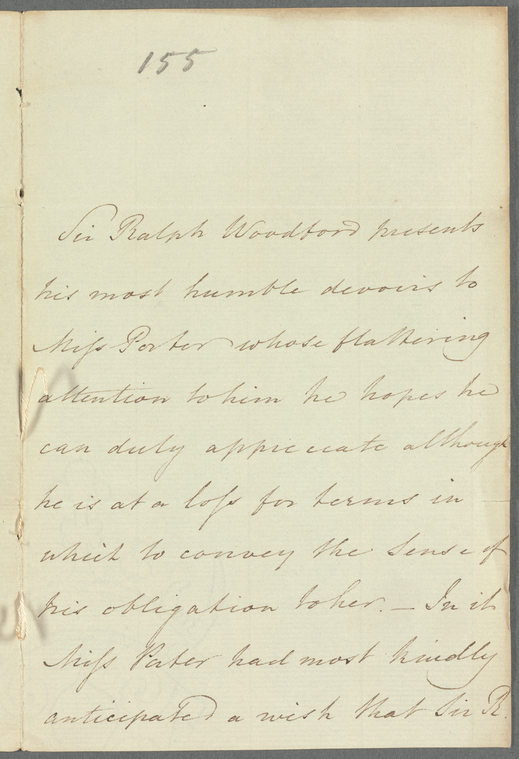 155
Sir Ralph Woodford presents
his most humble devoirs to
Miſs Porter whose flattering
attention to him he hopes he
can duly appreciate although
he is at a loſs for terms in
which to convey the Sense of
his obligation to her. – In it
Miſs Porter had most kindly
anticipated a wish that Sir R.